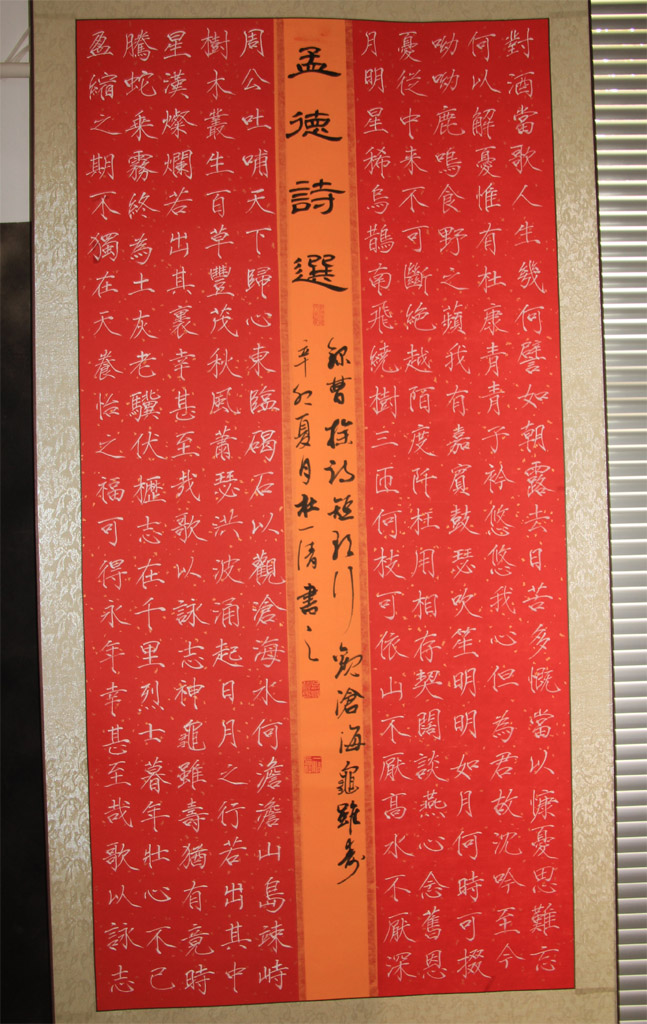 對酒當歌人生幾何譬如朝露去日苦多慨當以慷憂思難忘
何以解憂惟有杜康青青子衿悠悠我心但為君故沈吟至今
呦呦鹿鳴食野之蘋我有嘉賓鼓瑟吹笙明明如月何時可掇
憂從中来不可斷絕越陌度阡枉用相存契闊談燕心念舊恩
月明星稀烏鵲南飛繞樹三匝何枝可依山不厭高水不厭深
孟德詩選
錄曹操詩短歌行觀滄海龜雖壽
辛卯夏月杜一清書之
周公吐哺天下歸心東臨碣石以觀滄海水何澹澹山島竦峙
樹木叢生百草豐茂秋風蕭瑟洪波涌起日月之行若出其中
星漢燦爛若出其裏幸甚至哉歌以詠志神龜雖壽猶有竟時
騰蛇乘霧終為土灰老驥伏櫪志在千里烈士暮年壯心不已
盈縮之期不獨在天養怡之福可得永年幸甚至哉歌以詠志